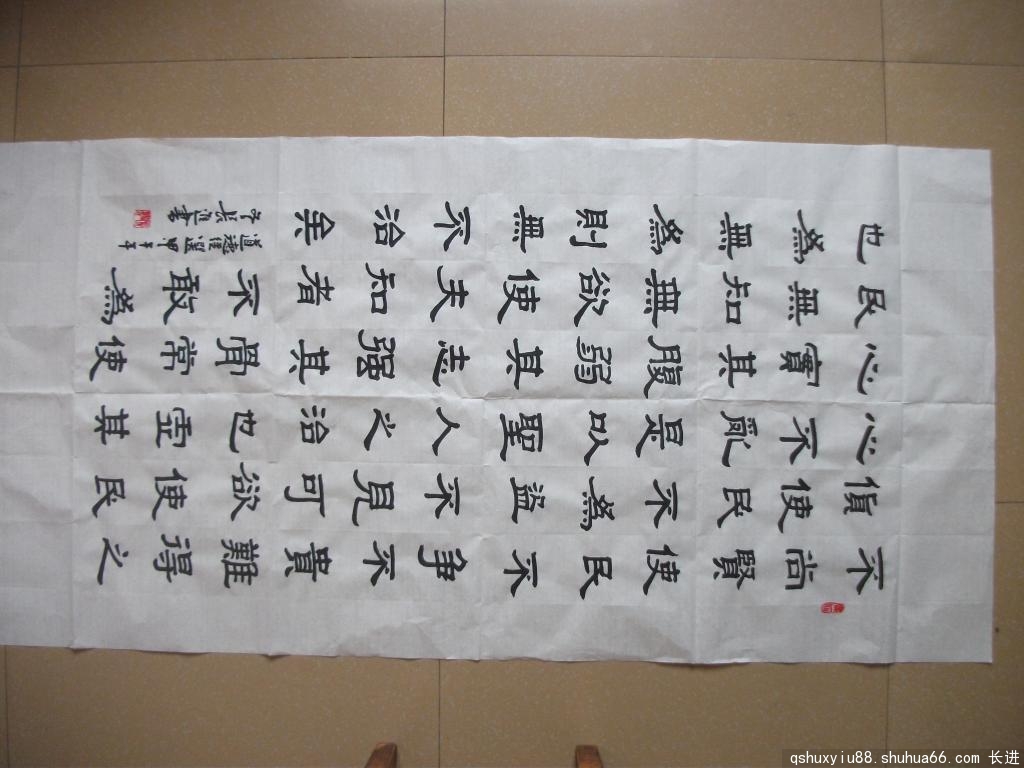 不尚賢使民不爭不貴難得之
貨不使民為盜不見可欲使民
心不亂是以聖人之治也虛其
心實其腹弱其志強其骨常使
民無知無欲使夫知者不敢為
也為無為則無不治矣
道德經選甲午年
長進書
qshuxyiu88.shuhua66.com 长进